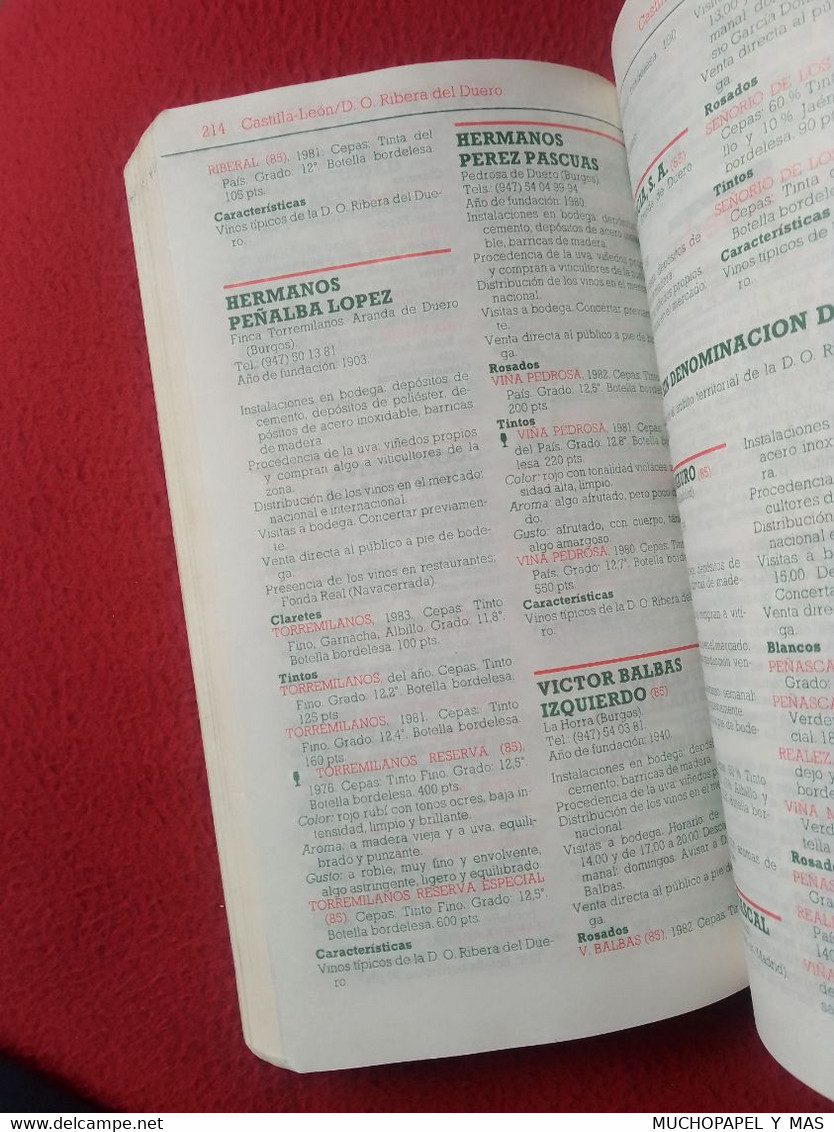 214 Castilla-León/D. O. Ribera del Duero
RIBERAL (85), 1981. Cepas: Tinta del
País. Grado: 12° Botella bordelesa.
105 pts.
Características
Vinos típicos de la D. O. Ribera del Due-
ro.
HERMANOS
PEÑALBA LOPEZ
Finca Torremilanos. Aranda de Duero
(Burgos).
Tel. (947) 50 13 81
Año de fundación: 1903.
Instalaciones en bodega: depósitos de
cemento, depósitos de poliéster, de-
pósitos de acero inoxidable, barricas
de madera.
Procedencia de la uva: viñedos propios
y compran algo a viticultores de la
zona.
Distribución de los vinos en el mercado:
nacional e internacional.
Visitas a bodega. Concertar previamen-
te.
Venta directa al público a pie de bode-
ga.
Presencia de los vinos en restaurantes:
Fonda Real (Navacerrada)
Claretes
TORREMILANOS, 1983. Cepas: Tinto
Fino, Garnacha, Albillo. Grado: 11,8°
Botella bordelesa. 100 pts.
Tintos
TORREMILANOS, del año. Cepas: Tinto
Fino. Grado: 12,2°. Botella bordelesa:
125 pts.
TORREMILANOS, 1981. Cepas: Tinto
Fino. Grado: 12,4°. Botella bordelesa
160 pts.
TORREMILANOS RESERVA (85),
1976. Cepas: Tinto Fino. Grado: 12,5°
Botella bordelesa. 400 pts.
Color: rojo rubí con tonos ocres, baja in-
tensidad, limpio y brillante.
Aroma: a madera vieja y a uva, equili-
brado y punzante.
Gusto: a roble, muy fino y envolvente,
algo astringente, ligero y equilibrado.
TORREMILANOS RESERVA ESPECIAL
(85). Cepas: Tinto Fino. Grado: 12,5°
Botella bordelesa. 600 pts.
Características
Vinos típicos de la D. O. Ribera del Due-
ro.
HERMANOS
PEREZ PASCUAS
Pedrosa de Duero (Burgos)
Tels.: (947) 54 04 99-94
Año de fundación: 1980.
Instalaciones en bodega: depós
cemento, depósitos de acero
ble, barricas de madera.
Procedencia de la uva: viñedos prop
y compran a viticultores de la
Distribución de los vinos en el mer
nacional.
Visitas a bodega. Concertar previame
te.
Venta directa al público a pie de bo
ga.
Rosados
VIÑA PEDROSA, 1982. Cepas: T
País. Grado: 12,5° Botella bord
200 pts.
Tintos
VIÑA PEDROSA, 1981. Cep
del País. Grado: 12.8° Botella
lesa 220 pts.
Color: rojo con tonalidad violácea
sidad alta, limpio.
Aroma: algo afrutado, pero poco
do.
Gusto: afrutado, con cuerpo,
algo amargoso.
VIÑA PEDROSA, 1980. Cepas:
País. Grado: 12.7° Botella
550 pts.
Características
Vinos típicos de la D. O. Ribera del
ro.
VICTOR BALBAS
IZQUIERDO (85)
La Horra (Burgos).
Tel.: (947) 54 03 81.
Año de fundación: 1940.
Instalaciones en bodega: depós
cemento, barricas de madera.
Procedencia de la uva: viñedos
Distribución de los vinos en el
nacional.
Visitas a bodega. Horario de
14,00 y de 17,00 a 20,00 Desc
manal: domingos. Avisar a D
Balbas.
Venta directa al público a pie de
ga.
Rosados
V. BALBAS (85), 1982. Cepas:
Venta directa al púb
ga.
Rosados
SEÑORIO DE LOS
Cepas: 60 % Tint
llo y 10 % Jaén
bordelesa. 90 p
Tintos
SEÑORIO DE LO
Cepas: Tinta d
Botella bordele
Características
Vinos típicos de
ro.
DENOMINACION D
ámbito territorial de la D. O.
Instalaciones
acero inox
ra.
Procedencia
cultores d
Distribución
nacional e
Visitas a b
16,00. De
Concerta
Venta direc
ga.
Blancos
PEÑASCA
Grado:
PEÑASCA
Verde
cial. 18
REALEZ
dejo y
borde
VIÑA M
Verd
tella
Rosado
PEÑAS
Gra
REAL
Paí
140
VIÑA
de
sa
MUCHOPAPEL Y MAS